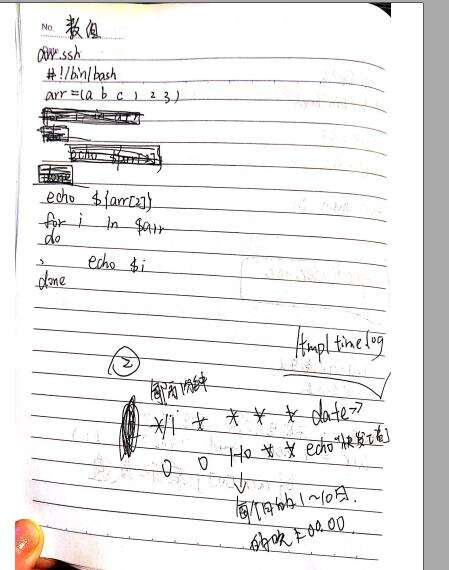 No. 数组
arr.ssh
#!/bin/bash
arr=(a b c 1 2 3)
echo ${arr[2]}
echo ${arr[2]}
for i in $arr
do
echo $i
done
/tmp/timelog
②
每两分钟
*/1 * * * * date >>
0 0 1-10 * * echo "快发工资"
↓
每个月的1~10日.
的晚上00.00